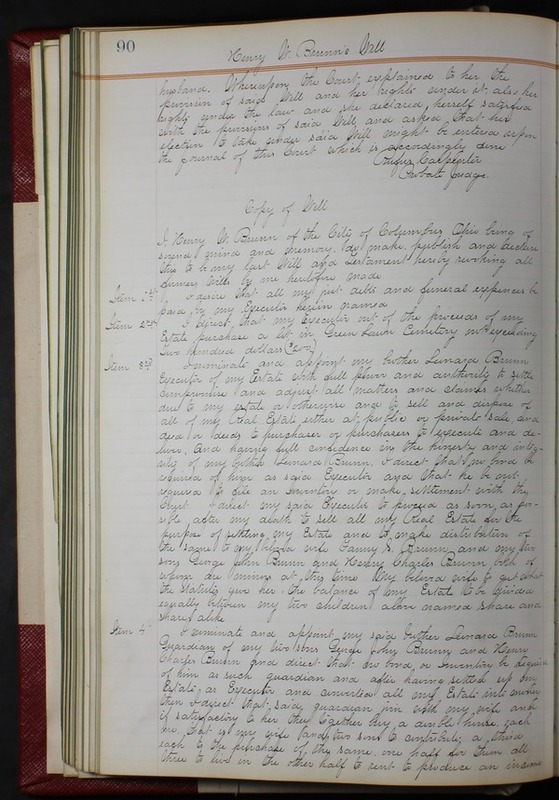 90
Henry W. Brunn's Will
husband. Whereupon the Court explained to her the
provision of said Will and her rights under it; also her
rights under the law and she declared herself satisfied
with the provisions of said Will, and asked that her
election to take under said Will might be entered upon
the Journal of this Court which is accordingly done
Rufus Carpenter
Probate Judge.
Copy of Will
I Henry W. Brunn of the City of Columbus Ohio being of
sound mind and memory, do make, publish and declare
this to be my last Will and Testament hereby revoking all
former Wills by me heretofore made
Item 1st I desire that all my just debts and funeral expenses be
paid by my Executor herein named
Item 2nd I direct that my Executor out of the proceeds of my
Estate purchase a lot in Green Lawn Cemetery not exceeding
two hundred dollars (200)
Item 3rd I nominate and appoint my brother Leonard Brunn
Executor of my Estate with full power and authority to settle
compromise and adjust all matters and claims whether
due to my estate or otherwise and to sell and dispose of
all of my Real Estate either at public or private sale, and
deed or deeds to purchaser or purchasers to execute and de-
liver, and having full confidence in the honesty and integ-
rity of my brother Leonard Brunn, I direct that no bond be
required of him as said Executor and that he be not
required to file an Inventory or make settlement with the
Court. I direct my said Executor to proceed as soon as pos-
sible after my death to sell all my Real Estate for the
purpose of settling my Estate and to make distribution of
the same to my beloved wife Fanny S. Brunn and my two
sons George John Brunn and Henry Charles Brunn, both of
whom are minors at this time. My beloved wife to get what
the statutes give her the balance of my Estate to be divided
equally between my two children above named share and
share alike
Item 4th I nominate and appoint my said brother Leonard Brunn
Guardian of my two sons George John Brunn and Henry
Charles Brunn and direct that no bond, or Inventory be required
of him as such guardian and after having settled up my
Estate, as Executor and converted all my Estate into money
then I direct that said guardian join with my wife and
if satisfactory to her they together buy a double house, each
one, that is my wife and two sons to contribute a third
each to the purchase of the same. one half for them all
three to live in the other half to rent to produce an income